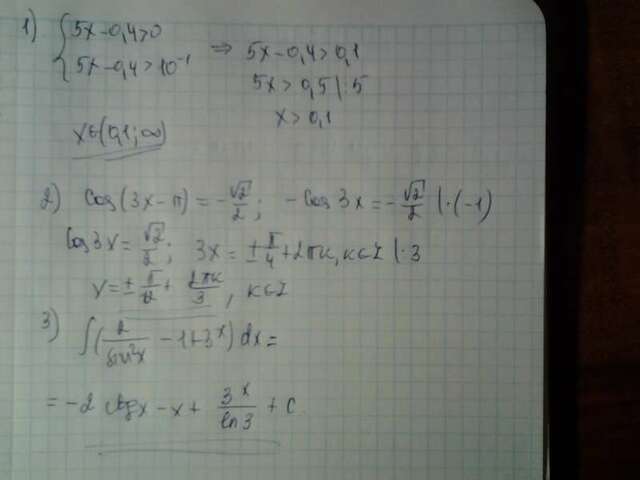 1) { 5x-0,4>0
5x-0,4>10⁻¹ ⇒ 5x-0,4>0,1
5x>0,5 |:5
x>0,1
x∈(0,1;∞)
2) cos(3x-π)=-√2/2; -cos3x=-√2/2 |·(-1)
cos3x=√2/2; 3x=±π/4+2πк, к∈Z |:3
x=±π/12+2πк/3, к∈Z
3) ∫(2/sin²x -1+3ˣ)dx=
=-2ctgx-x+3ˣ/ln3+c